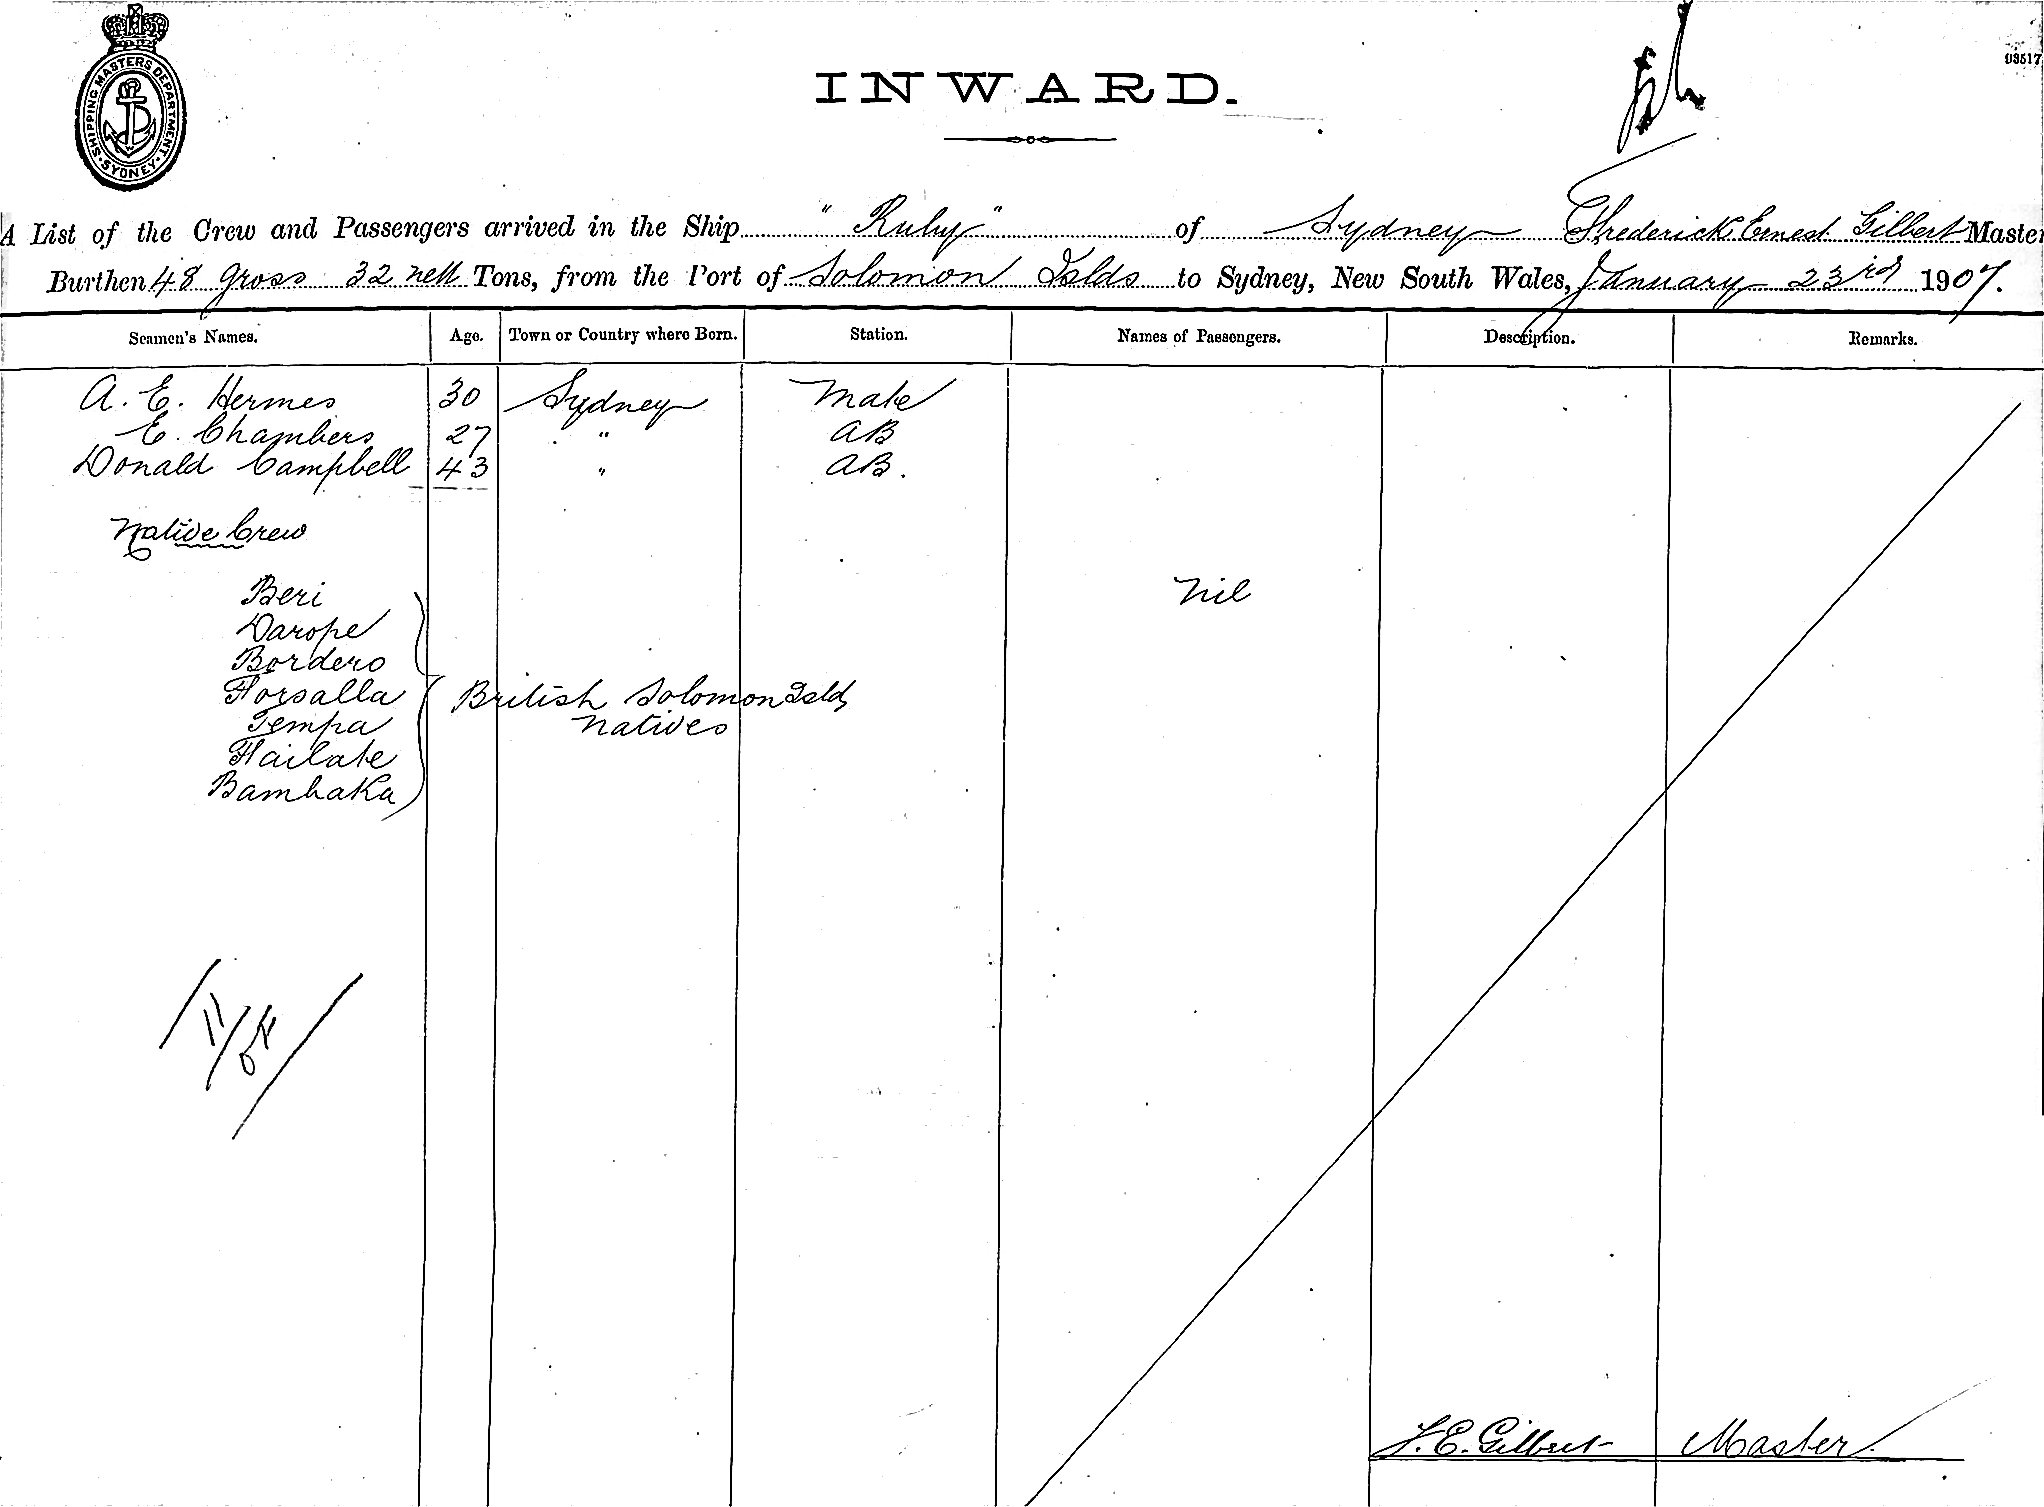 SHIPPING MASTERS DEPARTMENT
SYDNEY
INWARD.
03517
A List of the Crew and Passengers arrived in the Ship "Ruby" of Sydney Frederick Ernest Gilbert Master
Burthen 48 gross 32 nett Tons, from the Port of Solomon Islds to Sydney, New South Wales, January 23rd 1907.
Seamen's Names. Age. Town or Country where Born. Station. Names of Passengers. Description. Remarks.
A. E. Hermes 30 Sydney Mate
E. Chambers 27 " AB
Donald Campbell 43 " AB.
Native Crew
Beri Nil
Darope
Bordero
Forsalla British Solomon Islds
Tempa Natives
Failate
Bambaka
11
F. E. Gilbert Master